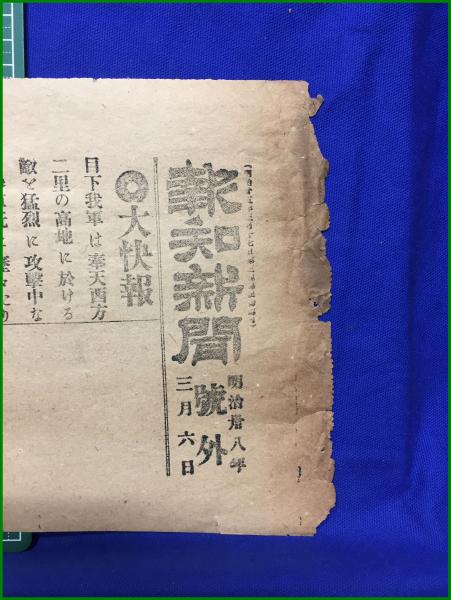 報知新聞
號外
明治卅八年
三月六日
◎大快報
目下我軍は奉天西方
二里の高地に於ける
敵を猛烈に攻撃中な